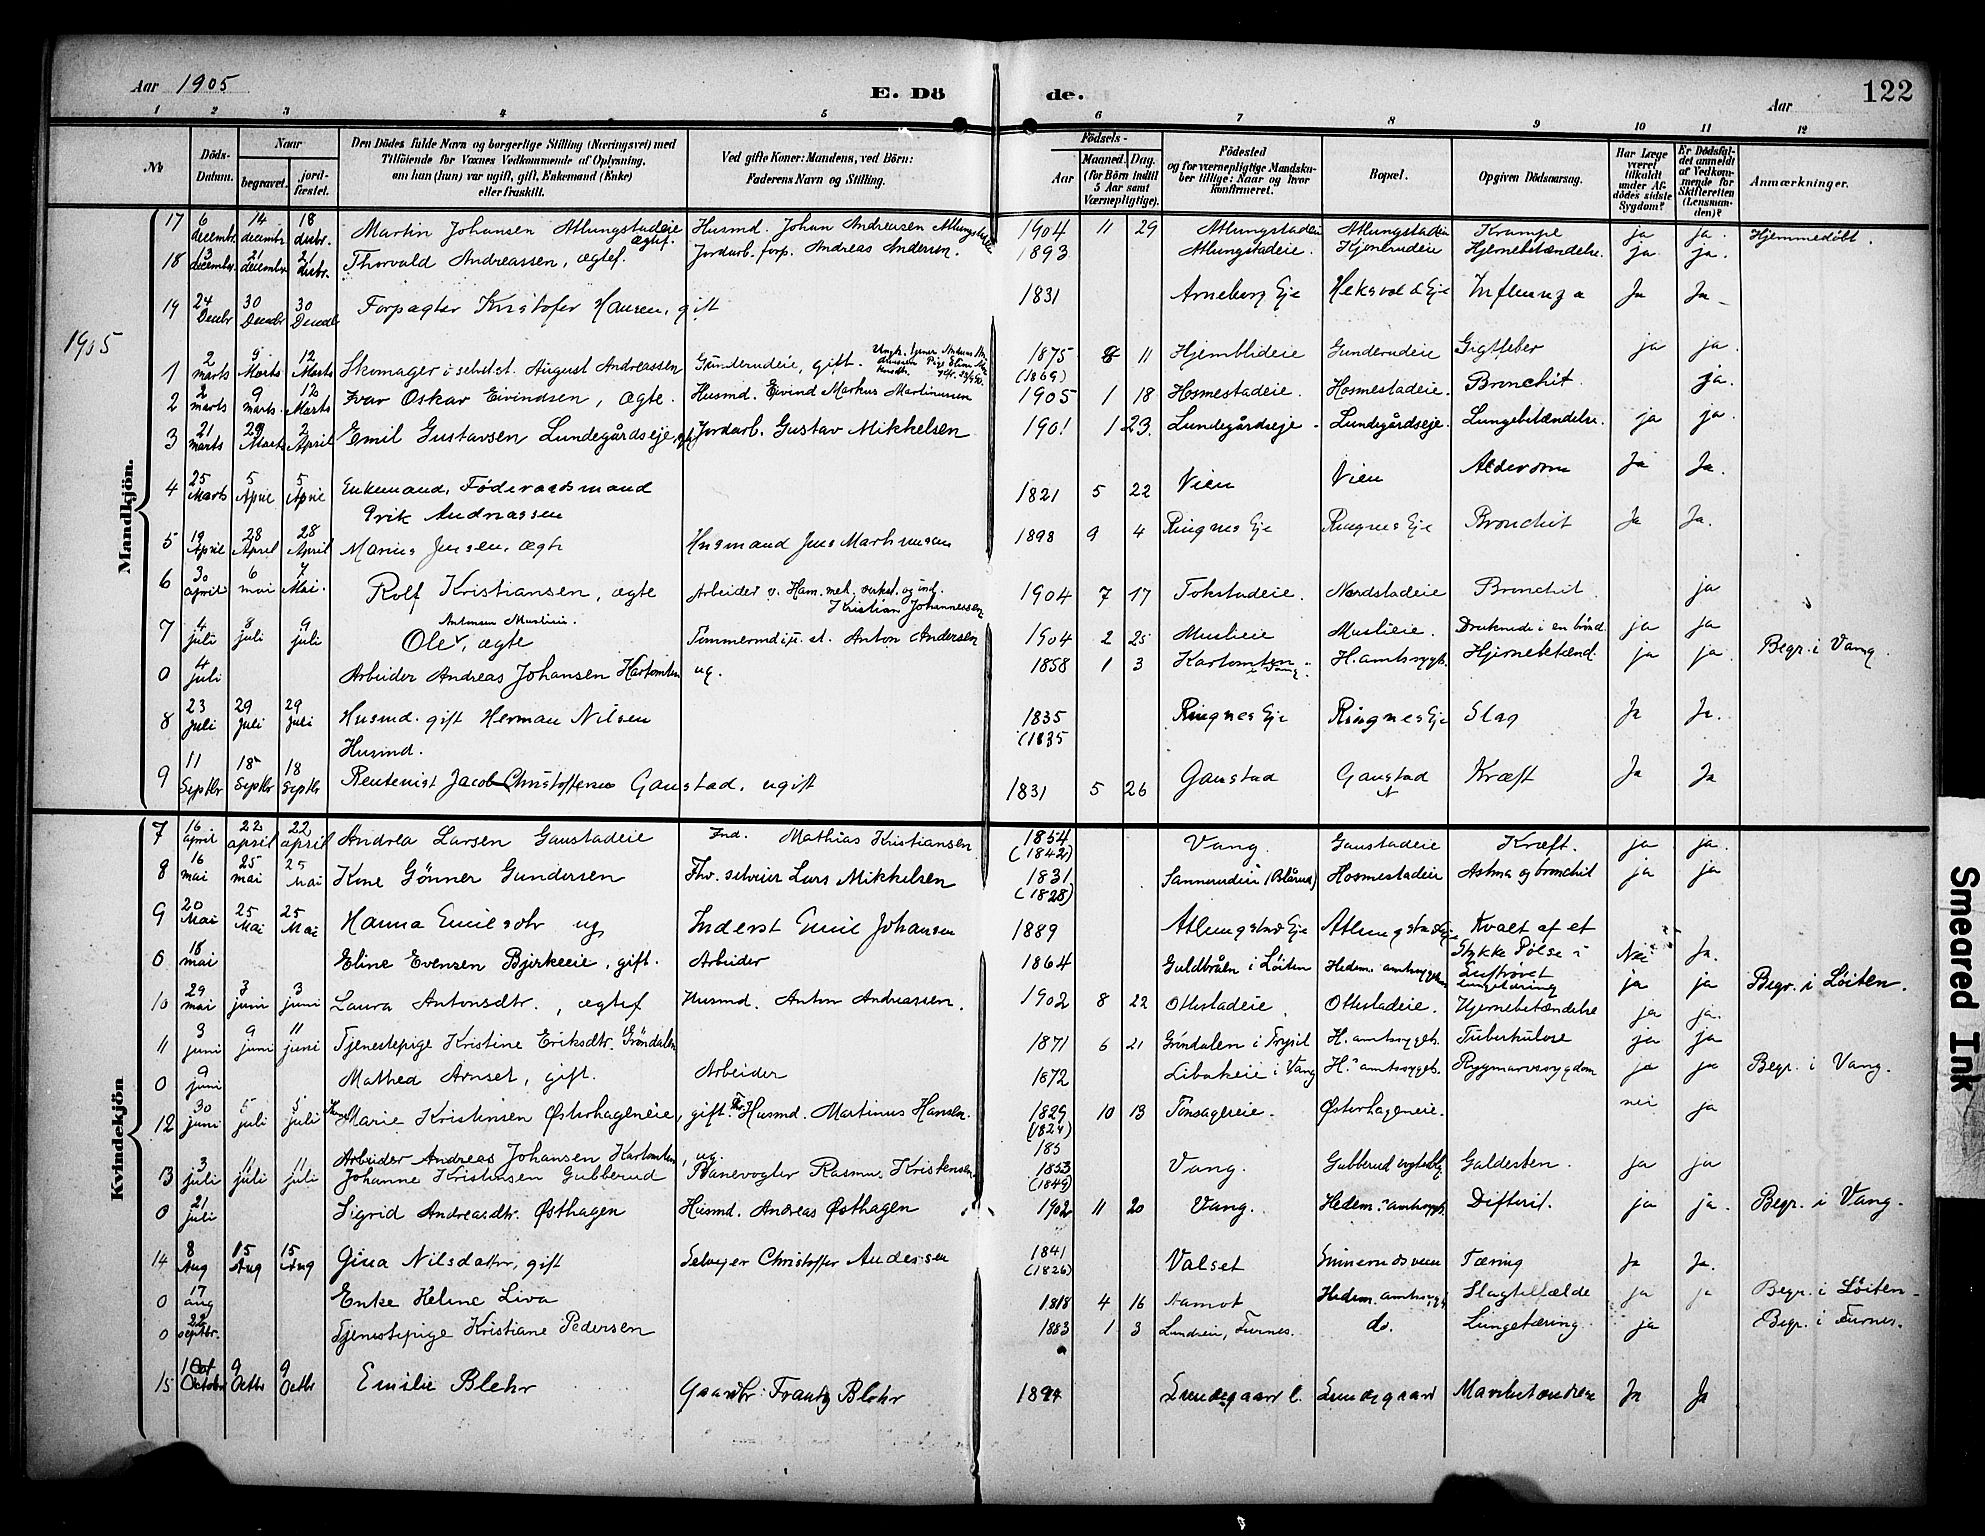 Aar 1905
E. Dö de.
Aar
122
1 2 3 4 5 6 7 8 9 10 11 12
No
Döds-Datum.
Naar
begravet.
jord-fæstet.
Den Dödes fulde Navn og borgerlige Stilling (Næringsvei) med Tilföiende for Voxnes Vedkommende af Oplysning, om han (hun) var ugift, gift, Enkemand (Enke) eller fraskilt.
Ved gifte Koner: Mandens, ved Börn: Faderens Navn og Stilling.
Födsels-
Aar
Maaned. Dag.
(for Börn indtil 5 Aar samt Værnepligtige).
Födested og for værnepligtige Mandskaber tillige: Naar og hvor konfirmeret.
Bopæl.
Opgiven Dödsaarsag.
Har Læge været tilkaldt under Afdödes sidste Sygdom?
Er Dödsfaldet anmeldt af Vedkommende for Skifteretten (Lensmanden)?
Anmærkninger.
Mandkjön.
17 6 decembr. 14 decembr 18 decbr. Martin Johansen Atlungstadeie ægtef. Husmd. Johan Andreasen 1904 11 29 Atlungstadeie Atlungstadeie Krampe ja ja. Hjemmedöbt.
18 decembr. 21 decembr. 21 decbr. Thorvald Andreassen, ægtef. Jordarb. forp. Andreas Andersen. 1893 Atlungstadeie. Hjemstudeie Hjernebetændelse. ja ja.
19 24 Decbr 30 Decembr 30 Decembr Forpagter Kristofer Hansen, gift 1831 Arneberg Eje Heksvold Eje Influenza Ja Ja
1905
1 2 marts 5 Marts 12 Marts Skomager i selvst. August Andreassen Gunderudeie, gift. 1875 (1869) 8 11 Hjemblideie Gunderudeie Gigtfeber ja ja.
2 2 marts 9 marts. 12 Marts Ivar Oskar Eivindsen, Ægte. Husmd. Eivind Markus Martinusen 1905 1 18 Hosmestadeie. Hosmestadeie. Bronchit. ja.
3 21 marts 29 Marts 2 April Emil Gustavsen Lundegårdseje, Jordarb. Gustav Mikkelsen 1901 1 23. Lundegårdseje Lundegårdseje. Lungebetændelse. ja ja.
4 25 Marts 5 April 5 April Enkemand, Föderaadsmand
Erik Andreassen 1821 5 22 Vien Vien Alderdom Ja Ja.
5 19 April 28 April 28 April Marius Jensen, ægte Husmand Jens Marthinusen 1898 9 4 Ringnes Eje Ringnes Eje Bronchit Ja Ja.
6 30 april 6 mai 7 Mai. Rolf Kristiansen, ægte Arbeider v. Ham. mek. verkst. og ind. Kristian Johannessen 1904 7 17 Tokstadeie. Nordstadeie Bronchit ja
7 4 juli 8 juli 9 juli Ole, ægte Antonsen Muslieie. Anton Andersen 1904 2 25 Muslieie Muslieie. Druknede i en brønd ja ja
0 4 juli Arbeider Andreas Johansen Kartomten ug. 1858 1 3 Kartomten i Vang. H. amtssygh. Hjernebetænd. ja ja. Begr. i Vang.
8 23 juli 29 Juli 29 Juli Husmd. gift Herman Nilsen
Husmd. 1835 (1835 Ringnes Eje Ringnes Eje Slag Ja Ja.
9 11 Septbr 18 Septbr 18 Septbr Rentenist Jacob Christoffersen Gaustad, ugift 1831 5 26 Gaustad Gaustad Kræft Ja Ja
Kvindekjön
7 16 april 22 april 22 april Andrea Larsen Gaustadeie Ind. Mathias Kristiansen 1854 (1842) Vang. Gaustadeie Kræft. ja ja.
8 16 mai 25 mai 25 Mai Kone Gönner Gundersen Thv. selveier Lars Mikkelsen 1831 (1828) Sannerudeie Hosmestadeie Astma og bronchit ja ja
9 20 Mai 25 Mai 25 Mai Hanna Emilsdtr ug Inderst Emil Johansen 1889 Atlungstad Eje Atlungstad Eje Kvalt af et Stykke Pölse i Luftröret Nei Ja.
0 18 mai Eline Evensen Bjerkeeie, gift. Arbeider 1864 Guldbråen i Löiten Hedem. amtssygeh. Lungetæring ja ja Begr. i Löiten.
10 29 mai 3 juni 3 juni Laura Antonsdtr., ægtef Husmd. Anton Andreassen. 1902 8 22 Ottestadeie Ottestadeie. Hjernebetændelse ja ja.
11 3 juni 9 juni 11 juni Tjenestepige Kristine Eriksdtr. Gröndalen 1871 6 21 Gröndalen i Trysil H. amtssygeh. Tuberkulose ja ja
0 9 juni Mathea Arnset, gift. Arbeider 1872 Libakeie i Vang H. amtssygeh. Rygmarvssygdom ja ja Begr. i Vang.
12 30 juni 5 juli 5 juli Marie Kristensen Østerhageneie, gift. Husmd. Martinus Hansen. 1829 (1824) 10 13 Tønsagereie. Østerhageneie. nei ja
Arbeider Andreas Johansen Kartomten, ug. 185
13 3 juli 11 juli 11 juli Johanne Kristensen Gubberud Banevogter Rasmus Kristensen 1853 (1849) Vang. Gubberud Galdesten. ja ja
0 21 juli Sigrid Andreasdtr. Østhagen Husmd. Andreas Østhagen 1902 11 20 Vang. Hedem. amtssygh. Difterit. ja ja. Begr. i Vang.
14 8 Aug 15 Aug 15 Aug Gina Nilsdatter, gift Selvejer Christoffer Andersen 1841 (1826) Valset Tæring Ja Ja.
0 17 aug Enke Heline Liva 1818 4 16 Aamot Hedem. amtssygh Slagtilfælde ja ja Begr. i Löiten
0 22 septbr. Tjenestepige Kristiane Pedersen 1883 1 3 Lundeie, Furnes. do. Lungetæring. ja Begr. i Furnes.
15 1 October 9 Octbr 9 Octbr Emilie Blehr Gaardbr: Frantz Blehr 1894 Lundegaard Lundegaard Mavebetændelse Ja Ja
Smeared Ink